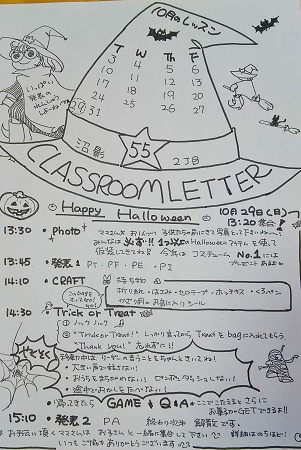 10月のレッスン
T W Th F
3 4 5 6
10 11 12 13
17 18 19 20
24 25 26 27
29:31
いっぱい
発表の
れんしゅう
しよーね
沼影 55 2丁目
CLASSROOM LETTER
Happy Halloween 10月29日(日)
13:20 集合
13:30 Photo
みんなは 必ず!! 1つ以上のHalloweenアイテムを使って
仮装してきてね! 今年は コスチューム No.1には
プレゼントあるよ
13:45 発表1 PT・PF・PE・PI
14:10 CRAFT 持ち物
のり・はさみ・セロテープ・ホッチキス・くろペン
かざり用のお気に入りシール
14:30 Trick or Treat
① ノック ノック!
② "Trick or Treat!" しっかり言ってから Treatを bagに入れてもらう
"Thank you!" も忘れずに!!
やくそく
移動中は リーダーの言うことをちゃんときいてね!
・大きい声で話さない!
・おうちをまちがわない! ピンポンダッシュしない!
・途中でおかしをたべない!
帰ってきたら GAME & Q&A
お菓子がGETできる!!
15:10 発表2 PA
お手伝い頂くママさんは お子さんと一緒に集合して下さい
いつもご協力ありがとうございます